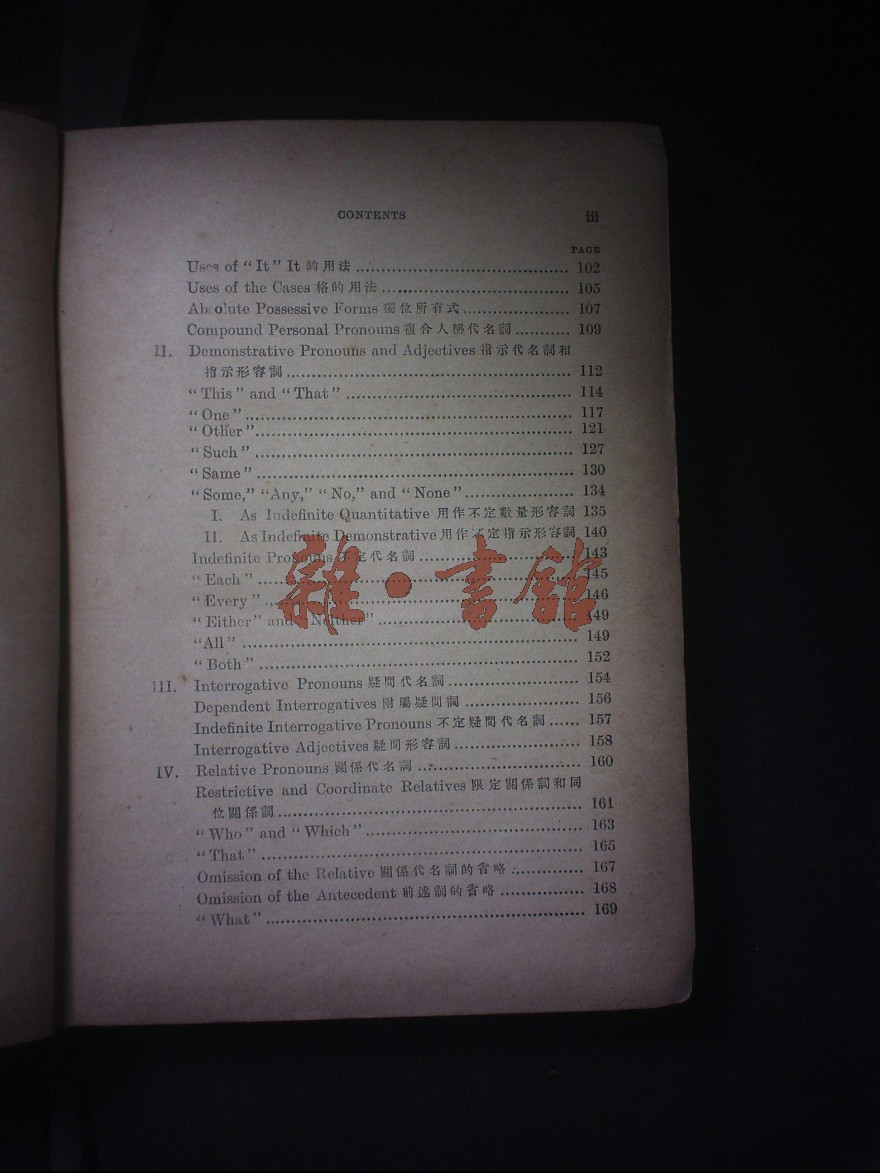 CONTENTS iii
PAGE
Uses of “It” It 的用法 ........................................ 102
Uses of the Cases 格的用法 ................................... 105
Absolute Possessive Forms 獨位所有式 .................... 107
Compound Personal Pronouns 複合人稱代名詞 ........... 109
II. Demonstrative Pronouns and Adjectives 指示代名詞和
指示形容詞 ...................................................... 112
“This” and “That” ........................................... 114
“One” ............................................................. 117
“Other” ........................................................... 121
“Such” ............................................................ 127
“Same” ........................................................... 130
“Some,” “Any,” “No,” and “None” .................... 134
I. As Indefinite Quantitative 用作不定數量形容詞 135
II. As Indefinite Demonstrative 用作不定指示形容詞 140
Indefinite Pronouns 不定代名詞 .............................. 143
“Each” ............................................................ 145
“Every” ........................................................... 146
“Either” and “Neither” ...................................... 149
“All” ............................................................... 149
“Both” ............................................................ 152
III. Interrogative Pronouns 疑問代名詞 ........................ 154
Dependent Interrogatives 附屬疑問詞 ..................... 156
Indefinite Interrogative Pronouns 不定疑問代名詞 ...... 157
Interrogative Adjectives 疑問形容詞 ........................ 158
IV. Relative Pronouns 關係代名詞 ............................... 160
Restrictive and Coordinate Relatives 限定關係詞和同
位關係詞 ......................................................... 161
“Who” and “Which” ......................................... 163
“That” ............................................................ 165
Omission of the Relative 關係代名詞的省略 ............. 167
Omission of the Antecedent 前述詞的省略 ................ 168
“What” ........................................................... 169
雜·書館